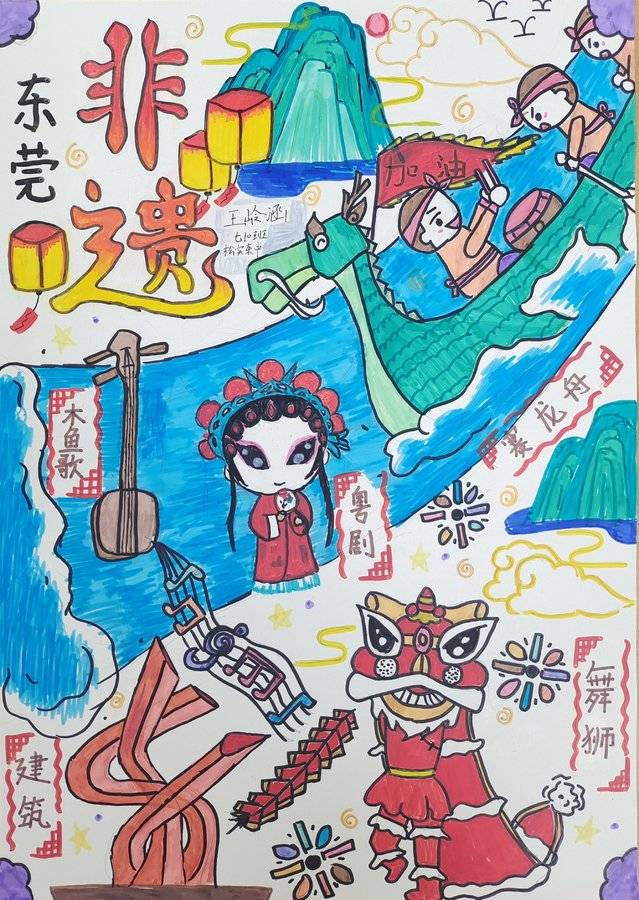 东莞
非
遗
加油
王岭涵
七10班
松实集中
赛龙舟
木鱼歌
粤剧
舞狮
建筑